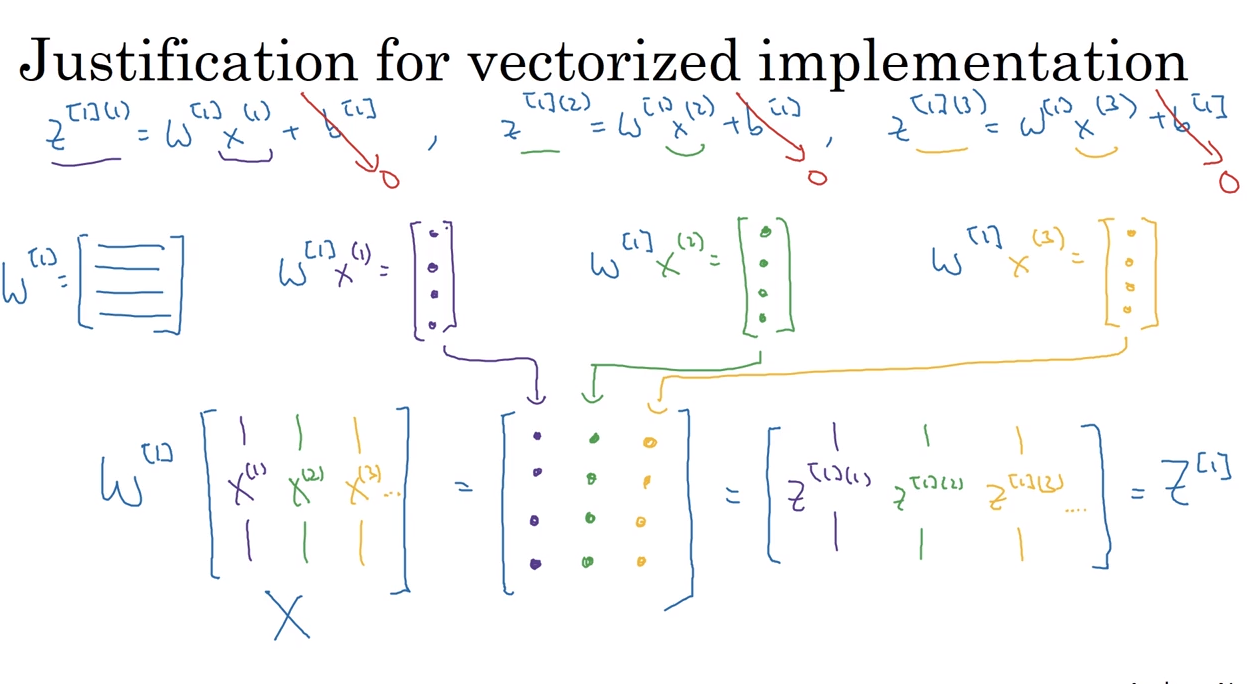 Justification for vectorized implementation
z^[1](1) = W^[1] x^(1) + b^[1] , z^[1](2) = W^[1] x^(2) + b^[1] , z^[1](3) = W^[1] x^(3) + b^[1]
0 0 0
W^[1] = [ ] W^[1] x^(1) = [ ] W^[1] x^(2) = [ ] W^[1] x^(3) = [ ]
W^[1] [ x^(1) x^(2) x^(3) ... ] = [ ] = [ z^[1](1) z^[1](2) z^[1](3) .... ] = Z^[1]
X